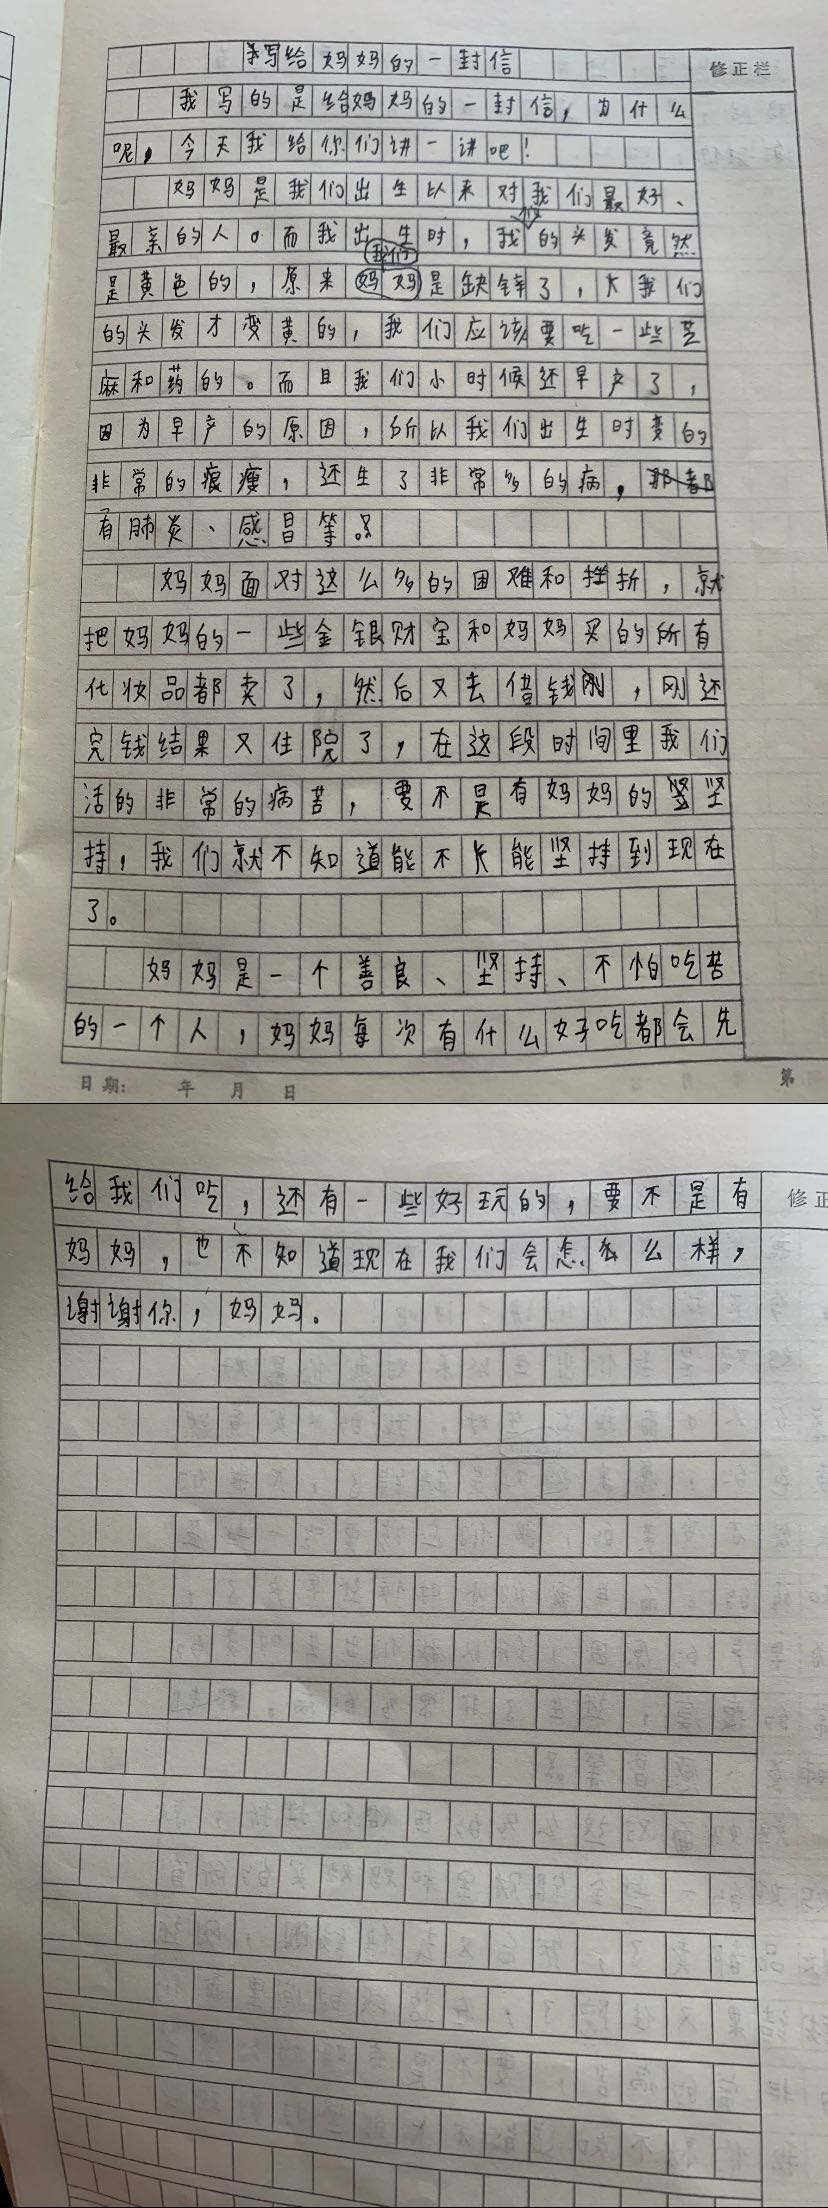 我写给妈妈的一封信
修正栏
我写的是给妈妈的一封信，为什么
呢，今天我给你们讲一讲吧！
妈妈是我们出生以来对我们最好、
最亲的人。而我出生时，我们的头发竟然
是黄色的，原来我们是缺锌了，我们
的头发才变黄的，我们应该要吃一些芝
麻和药的。而且我们小时候还早产了，
因为早产的原因，所以我们出生时变的
非常的瘦，还生了非常多的病，
有肺炎、感冒等。
妈妈面对这么多的困难和挫折，就
把妈妈的一些金银财宝和妈妈买的所有
化妆品都卖了，然后又去借钱，刚还
完钱结果又住院了，在这段时间里我们
活的非常的病苦，要不是有妈妈的坚
持，我们就不知道能不能坚持到现在
了。
妈妈是一个善良、坚持、不怕吃苦
的一个人，妈妈每次有什么好吃都会先
日期： 年 月 日 第
给我们吃，还有一些好玩的，要不是有
修正
妈妈，也不知道现在我们会怎么样，
谢谢你，妈妈。